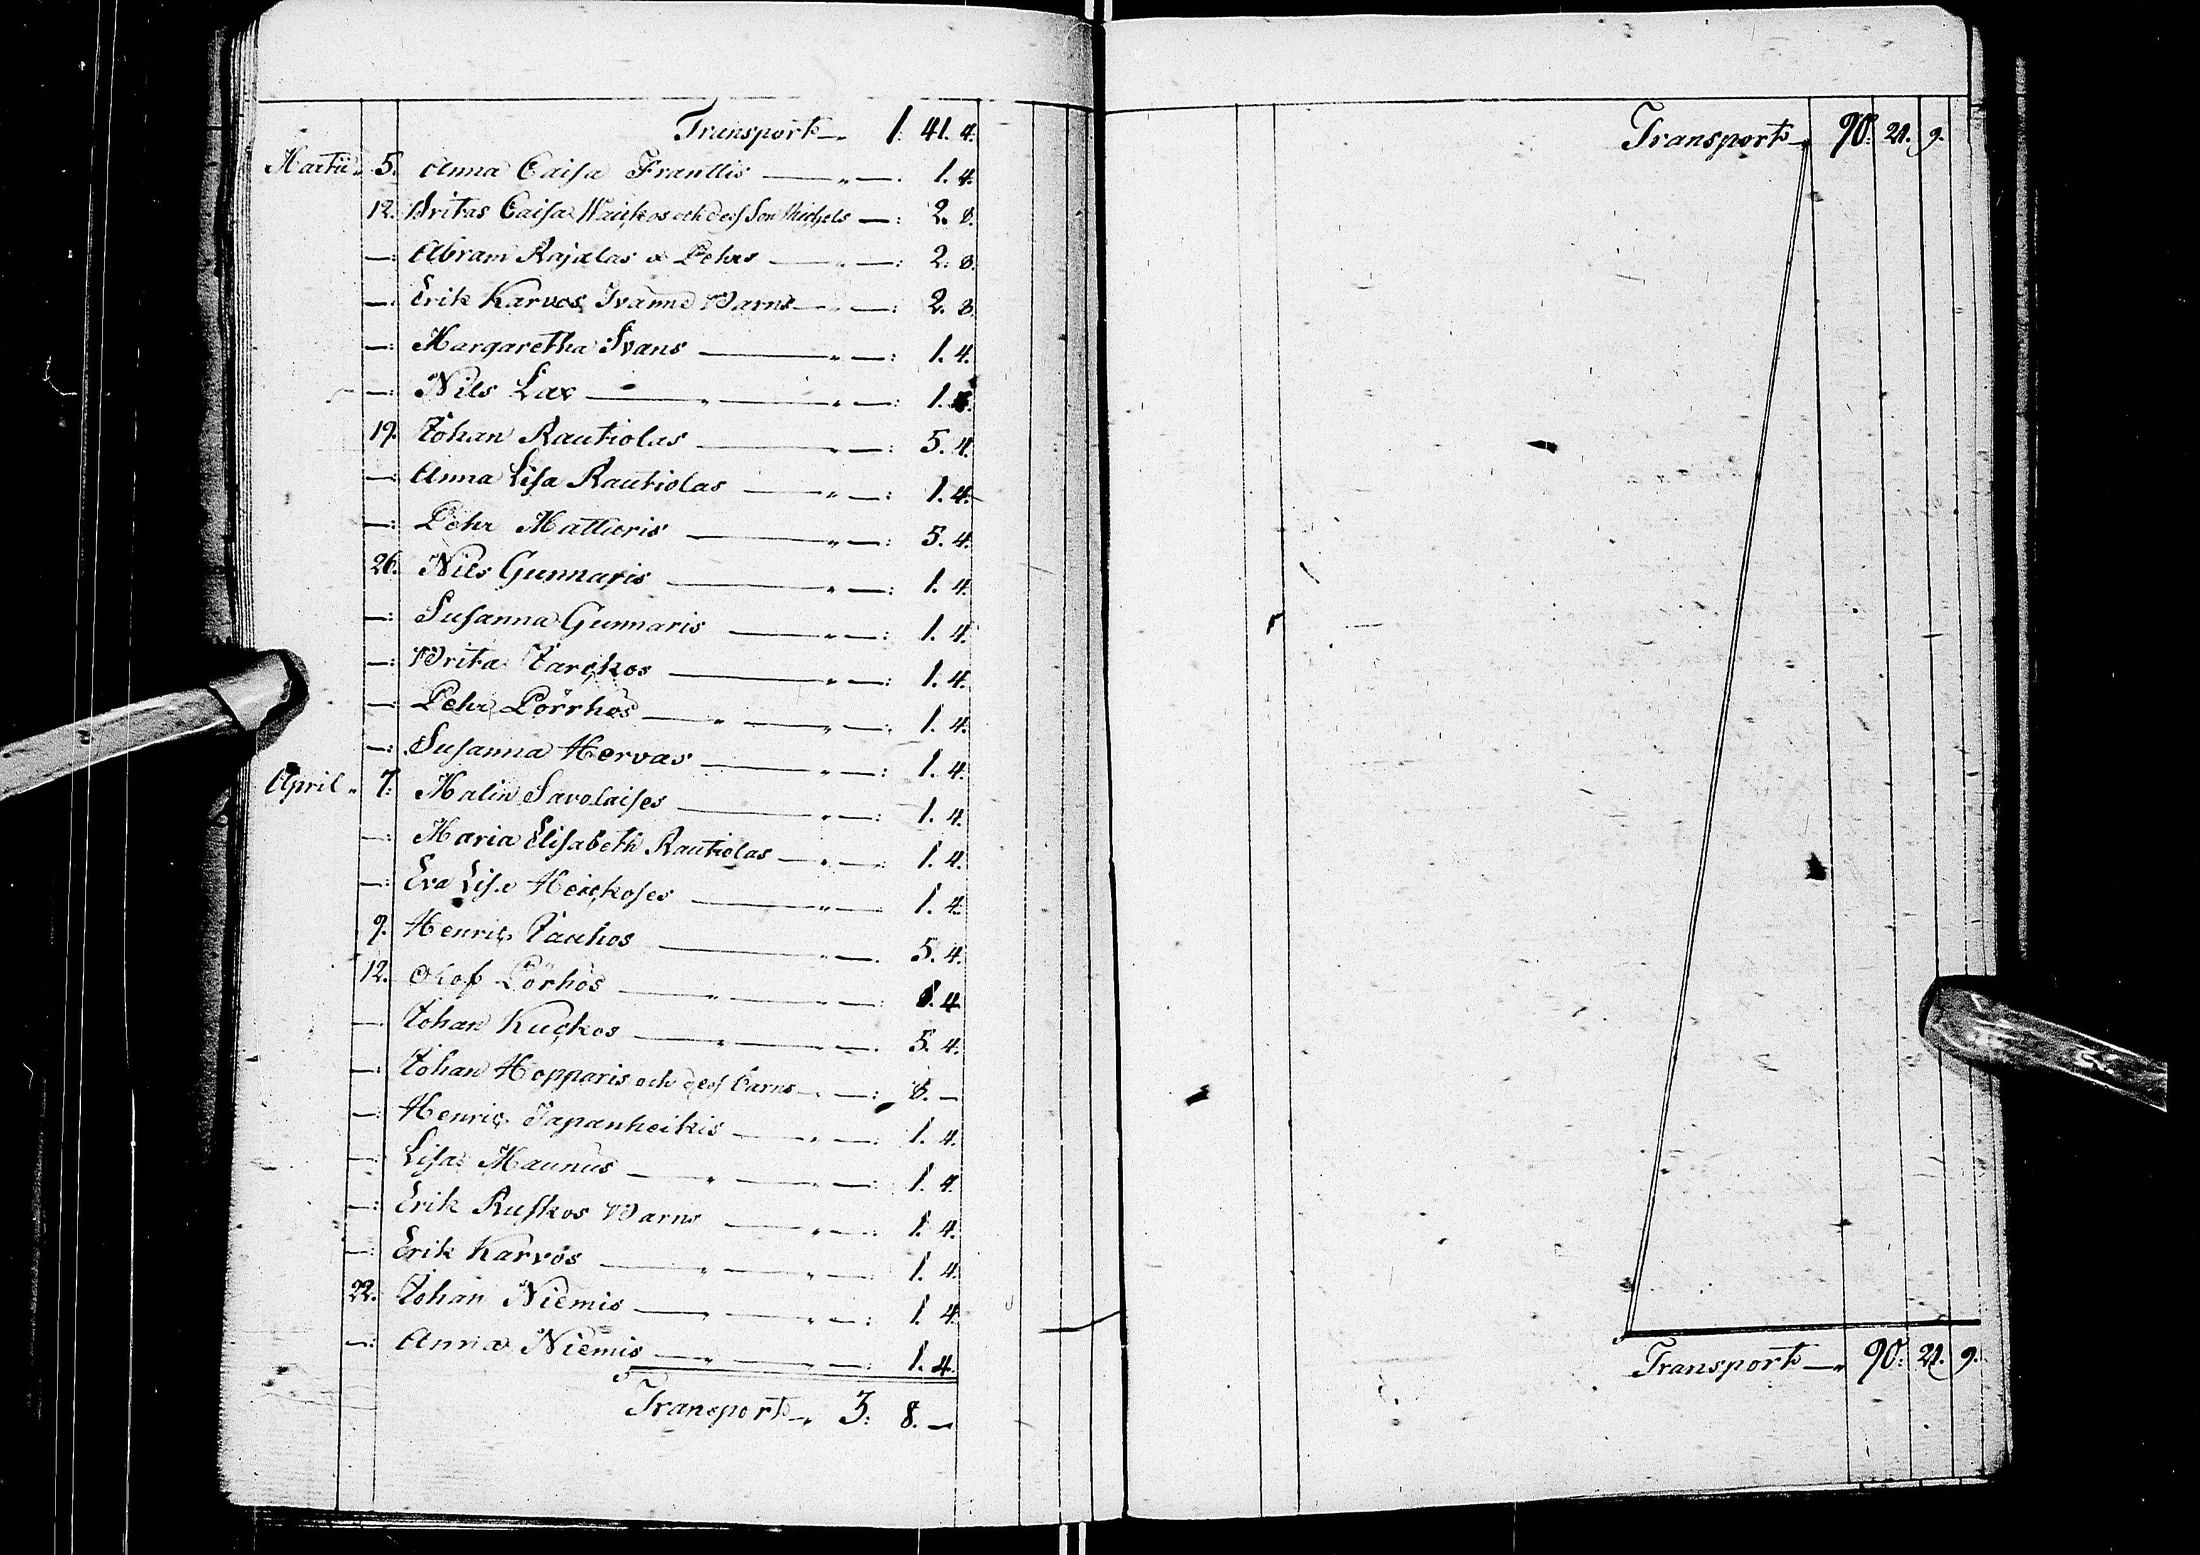 Transport —„ 1. 41. 4.
Martii „ 5. Anna Caisa Franttis — „ — . 1. 4.
12. Britas Caisa och dess Son Michels — : 2. 8.
— : Abram Rajalas — „ — : 2. 8.
— : Erik Karvos Barns — . — : 2. 8.
— : Margaretha Ivans — „ — : 1. 4.
— : Nils Lax — „ — „ — : 1. 4.
19. Johan Rautiolas — „ — : 5. 4.
— : Anna Lisa Rautiolas — „ — : 1. 4.
— : Pehr Mattieris — „ — : 5. 4.
26. Nils Gunnaris — „ — : 1. 4.
— : Susanna Gunnaris — „ — : 1. 4.
— : Brita Jarckos — „ — : 1. 4.
— : Pehr Pörrhös — „ — „ — . 1. 4.
— : Susanna Hervas — „ — : 1. 4.
April „ 7. Malin Savolaises — „ — : 1. 4.
— : Maria Elisabeth Rautiolas — „ — : 1. 4.
— : Eva Lisa Heickoses — „ — 1. 4.
9. Henric Jauhos — „ — . 5. 4.
12. Olof Pörhös — „ — „ — : 1. 4
— . Johan Kuckos — „ — „ — . 5. 4.
— . Johan Hopparis och dess barns — . — : 8. —
— : Henric Tapanheikis — „ — : 1. 4.
— : Lisa Maunus — „ — „ — : 1. 4.
— : Erik Ruskos Barns — „ — : 1. 4.
— : Erik Karvos — „ — „ — : 1. 4.
22. Johan Niemis — „ — „ — : 1. 4.
— : Anna Niemis — „ — „ — : 1. 4.
Transport —„ 3: 8. —
Transport —„ 90: 21. 9.
Transport —„ 90: 21. 9.